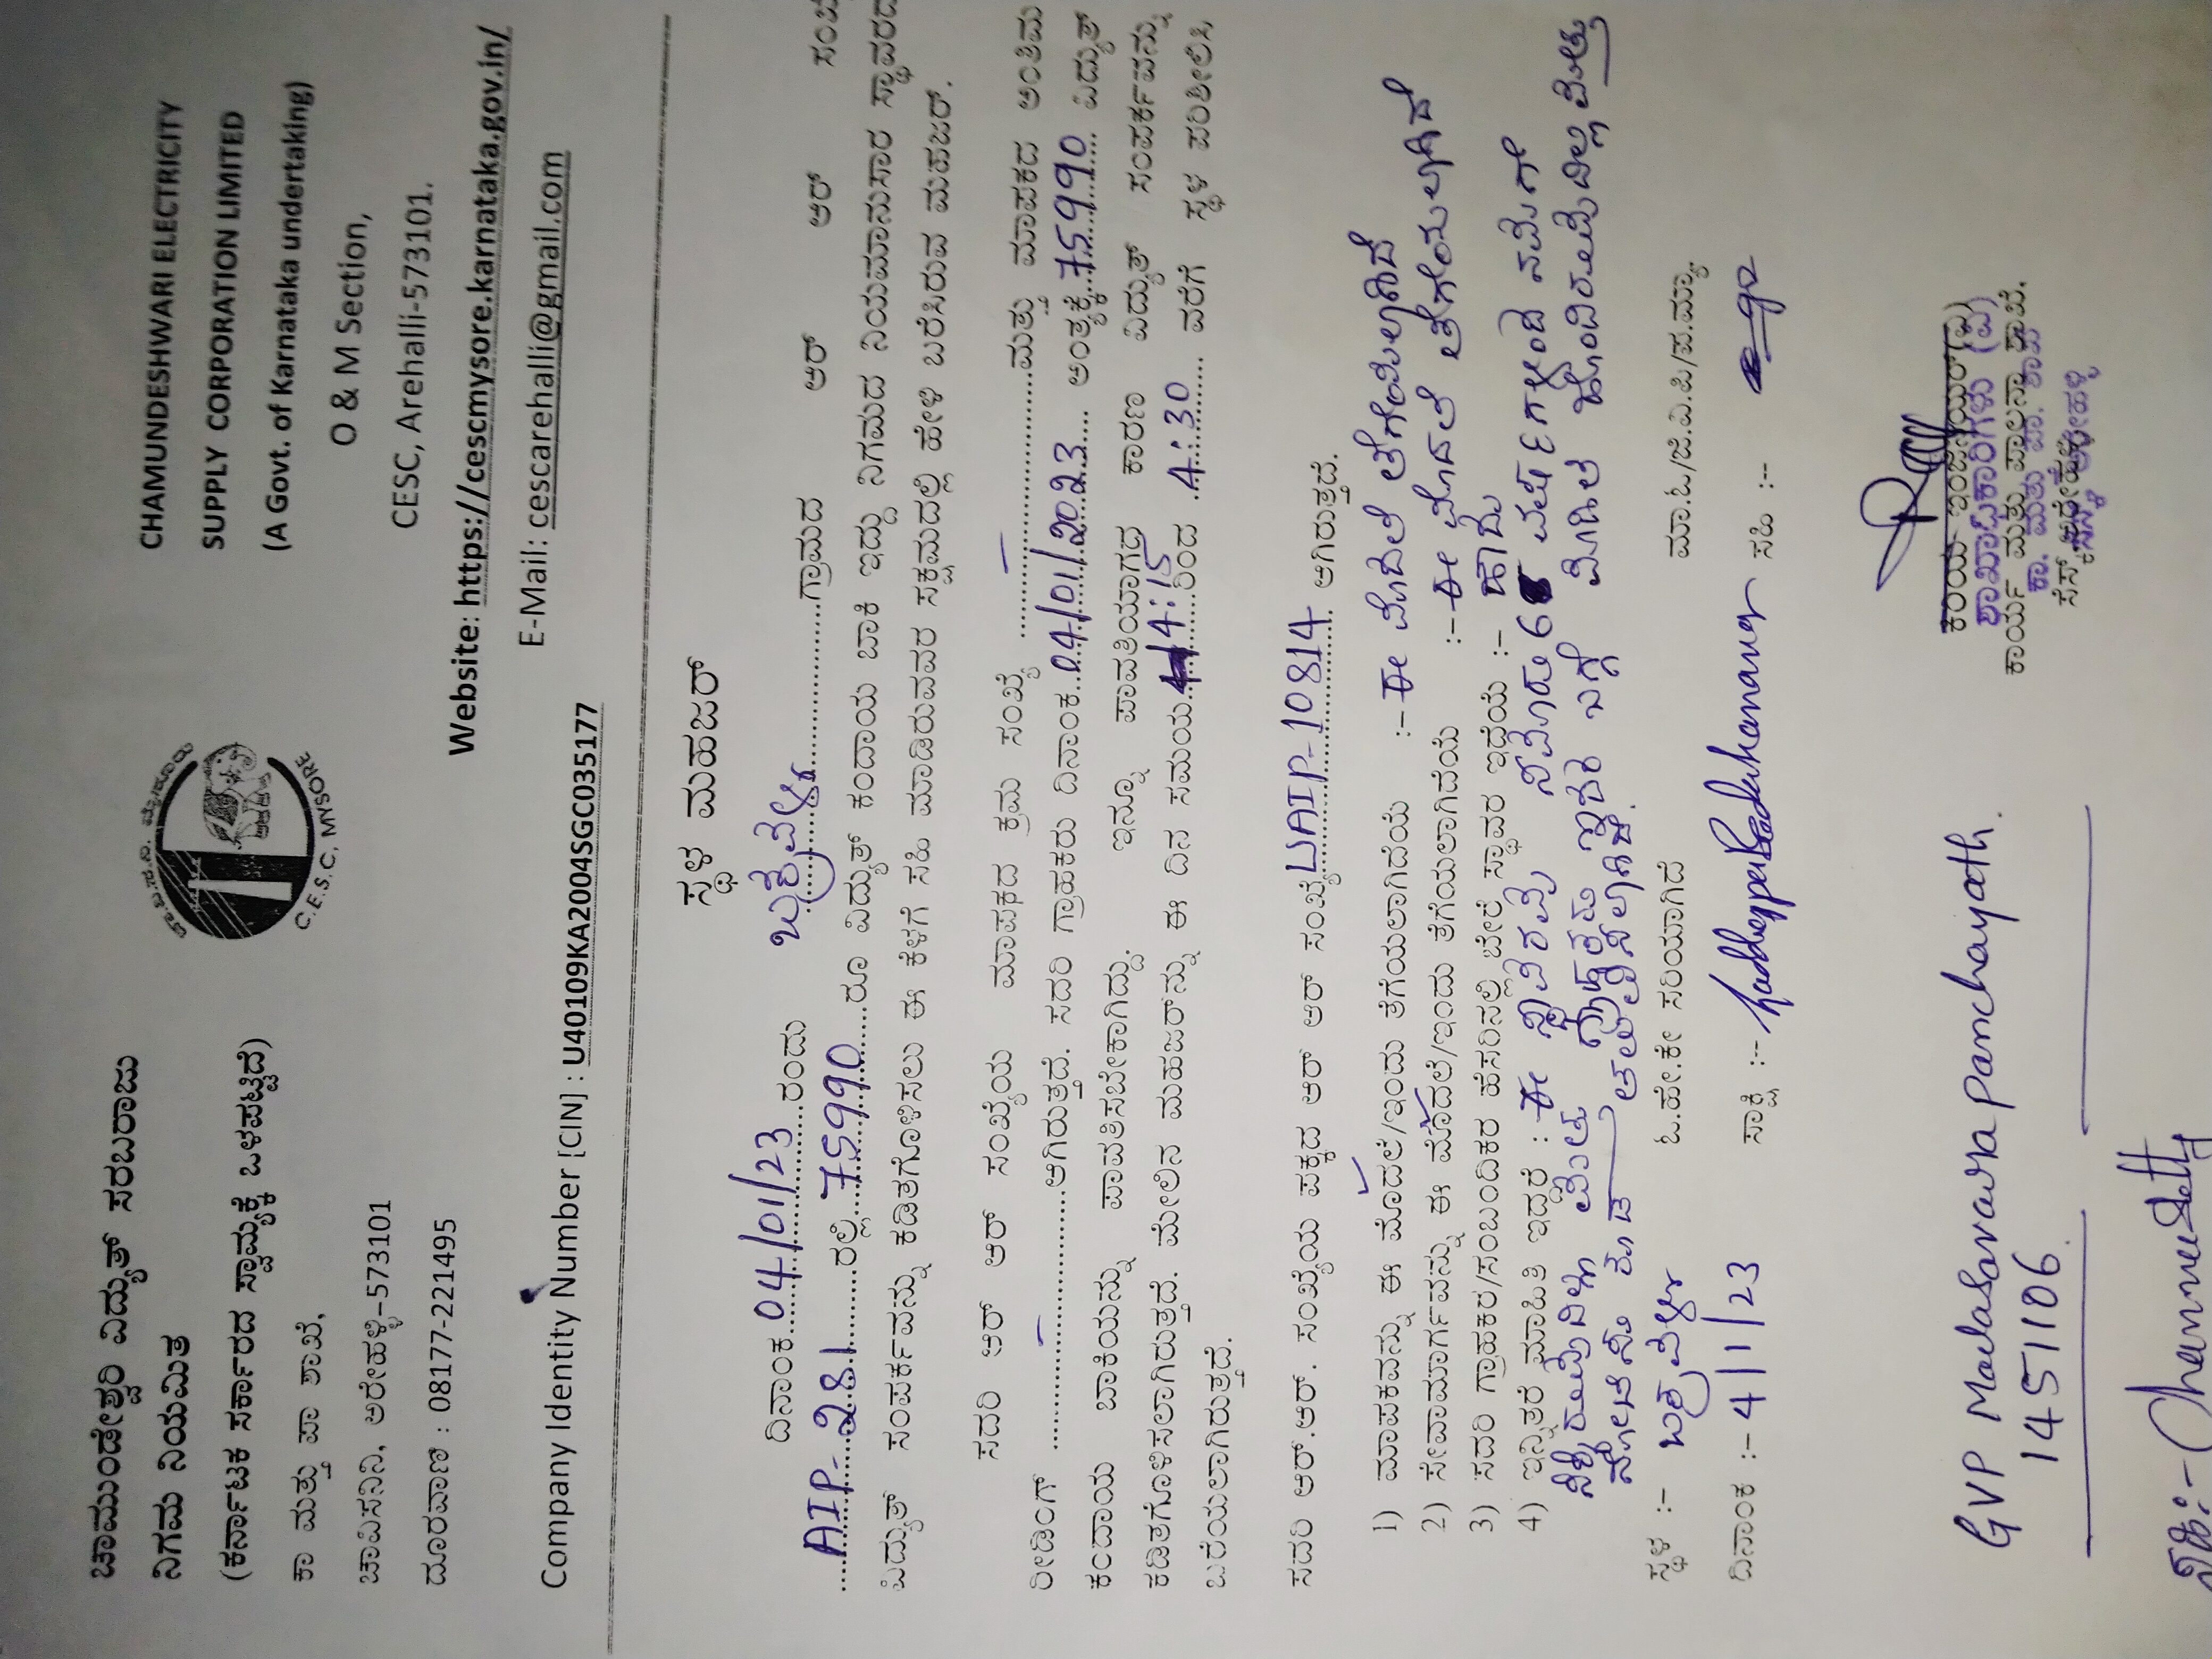 ಚಾಮುಂಡೇಶ್ವರಿ ವಿದ್ಯುತ್ ಸರಬರಾಜು
ನಿಗಮ ನಿಯಮಿತ
(ಕರ್ನಾಟಕ ಸರ್ಕಾರದ ಸ್ವಾಮ್ಯಕ್ಕೆ ಒಳಪಟ್ಟಿದೆ)
ಕಾ ಮತ್ತು ಪಾ ಶಾಖೆ,
ಚಾವಿಸನಿನಿ, ಅರೇಹಳ್ಳಿ-573101
ದೂರವಾಣಿ : 08177-221495
C.E.S.C, MYSORE
CHAMUNDESHWARI ELECTRICITY
SUPPLY CORPORATION LIMITED
(A Govt. of Karnataka undertaking)
O & M Section,
CESC, Arehalli-573101.
Website: https://cescmysore.karnataka.gov.in/
E-Mail: cescarehalli@gmail.com
Company Identity Number [CIN] : U40109KA2004SGC035177
ಸ್ಥಳ ಮಹಜರ್
ದಿನಾಂಕ 04/01/23 ರಂದು ಗ್ರಾಮದ ಆರ್ ಆರ್
AIP-281 ರಲ್ಲಿ 75990 ರೂ ವಿದ್ಯುತ್ ಕಂದಾಯ ಬಾಕಿ ಇದ್ದು ನಿಗಮದ ನಿಯಮಾನುಸಾರ ಸ್ಥಾವರದ
ವಿದ್ಯುತ್ ಸಂಪರ್ಕವನ್ನು ಕಡಿತಗೊಳಿಸಲು ಈ ಕೆಳಗೆ ಸಹಿ ಮಾಡಿರುವವರ ಸಕ್ಷಮದಲ್ಲಿ ಹೇಳಿ ಬರೆಸಿರುವ ಮಹಜರ್.
ಸದರಿ ಆರ್ ಆರ್ ಸಂಖ್ಯೆಯ ಮಾಪಕದ ಕ್ರಮ ಸಂಖ್ಯೆ – ಮತ್ತು ಮಾಪಕದ ಅಂತಿಮ
ರೀಡಿಂಗ್ – ಆಗಿರುತ್ತದೆ. ಸದರಿ ಗ್ರಾಹಕರು ದಿನಾಂಕ 04/01/2023 ಅಂತ್ಯಕ್ಕೆ 75990 ವಿದ್ಯುತ್
ಕಂದಾಯ ಬಾಕಿಯನ್ನು ಪಾವತಿಸಬೇಕಾಗಿದ್ದು. ಇನ್ನೂ ಪಾವತಿಯಾಗದ ಕಾರಣ ವಿದ್ಯುತ್ ಸಂಪರ್ಕವನ್ನು
ಕಡಿತಗೊಳಿಸಲಾಗಿರುತ್ತದೆ. ಮೇಲಿನ ಮಹಜರ್‌ನ್ನು ಈ ದಿನ ಸಮಯ 4:15 ರಿಂದ 4:30 ವರೆಗೆ ಸ್ಥಳ ಪರಿಶೀಲಿಸಿ,
ಬರೆಯಲಾಗಿರುತ್ತದೆ.
ಸದರಿ ಆರ್.ಆರ್. ಸಂಖ್ಯೆಯ ಪಕ್ಕದ ಆರ್ ಆರ್ ಸಂಖ್ಯೆ UAIP-10814 ಆಗಿರುತ್ತದೆ.
1) ಮಾಪಕವನ್ನು ಈ ಮೊದಲೆ/ಇಂದು ತೆಗೆಯಲಾಗಿದೆಯೆ :- ಈ ಮೊದಲೆ ತೆಗೆಯಲಾಗಿದೆ
2) ಸೇವಾಮಾರ್ಗವನ್ನು ಈ ಮೊದಲೆ/ಇಂದು ತೆಗೆಯಲಾಗಿದೆಯೆ :- ಈ ಮೊದಲೆ ತೆಗೆಯಲಾಗಿದೆ
3) ಸದರಿ ಗ್ರಾಹಕರ/ಸಂಬಂದಿಕರ ಹೆಸರಿನಲ್ಲಿ ಬೇರೆ ಸ್ಥಾವರ ಇದೆಯೆ :- ಹೌದು
4) ಇನ್ನಿತರೆ ಮಾಹಿತಿ ಇದ್ದರೆ : ಈ ಸ್ಥಾವರವು ಸುಮಾರು 6 ವರ್ಷಗಳಿಂದ
ಓ.ಹೇ.ಕೇ ಸರಿಯಾಗಿದೆ
ಮಾ.ಓ/ಜೆ.ವಿ.ಪಿ/ಪ.ಮ್ಯಾ.
ಸ್ಥಳ :-
ದಿನಾಂಕ :- 4/1/23
ಸಾಕ್ಷಿ :-
ಸಹಿ :-
ಕಾರ್ಯ ಮತ್ತು ಪಾಲನಾ ಶಾಖೆ.
GVP Malasavara Panchayath.
14511106